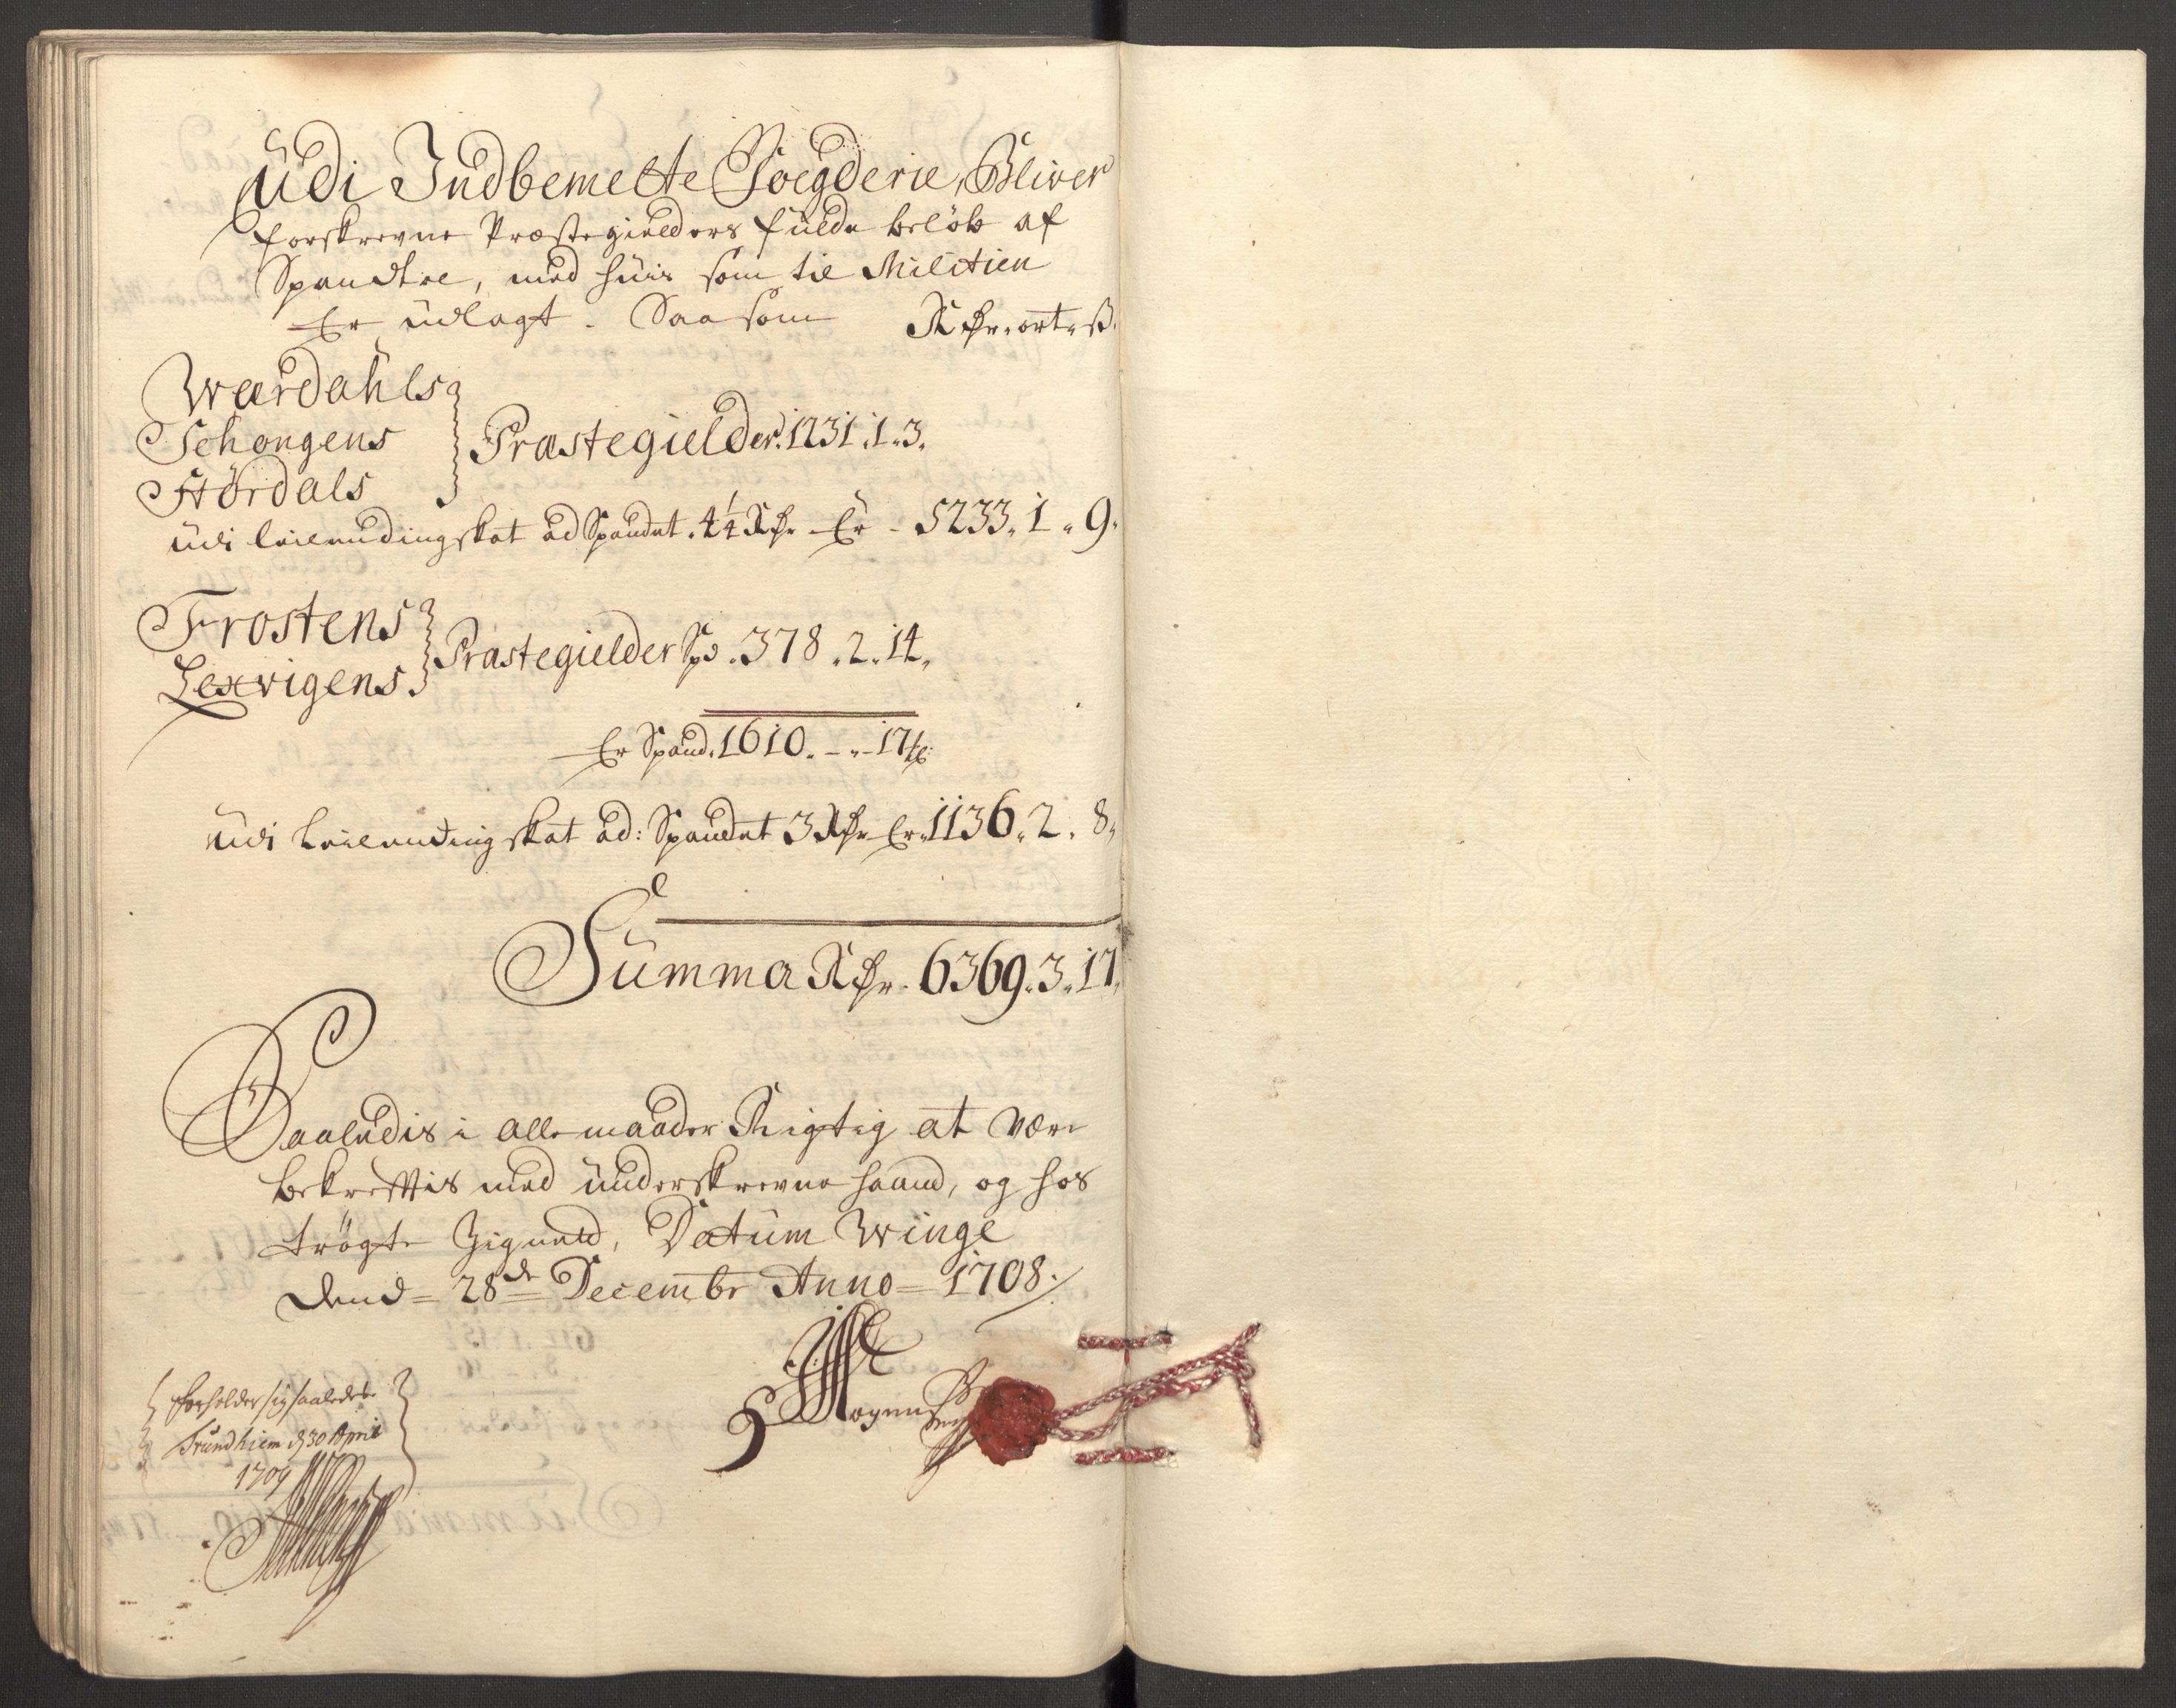 Udi Indbemelte Foegderie, Bliver
forskrevne Præstegielders fulde beløb af
Spandtal, med huis som til Militien
Er udlagt. Saasom Rdr. ort. ß.
Wærdahls
Schongens Præstegielder. 1231. 1. 3.
Stördals
Udi leilendingskat ad Spandet. 4¼ Rdr Er - 5233. 1. 9.
Frostens
Præstegielder Spd. 378. 2. 14.
Lexvigens
Er Spand. 1610. - - 17
Udi Leilendingskat ad: Spandet 3 Rdr Er. 1136. 2. 8.
Summa Rdr. 6369. 3. 17.
Saaledis i alle maader Rigtig at være
bekreftis med underskrevne haand, og hos
trögte Zignetd, Datum Winge
dend = 28de Decembr Anno = 1708.
forholder sig saaledes
Trundhiem d 30 April
1709